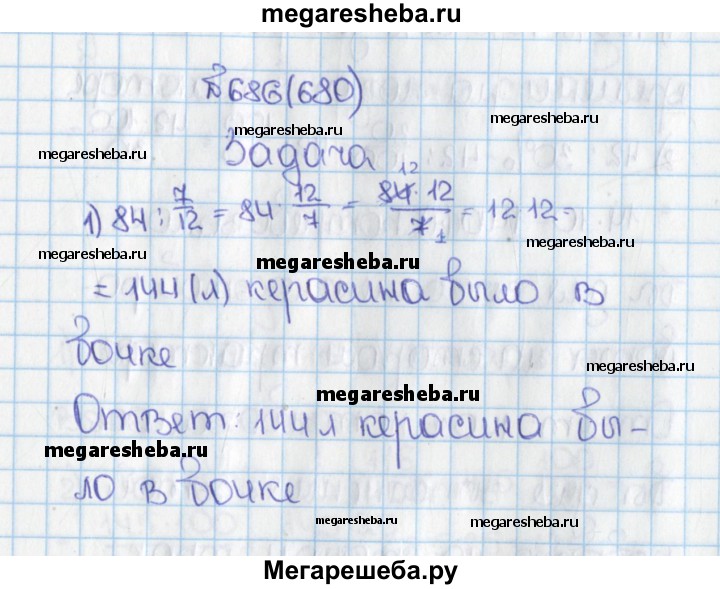 megaresheba.ru
№686(680)
megaresheba.ru
Задача
megaresheba.ru
megaresheba.ru
1) 84 : 7/12 = 84 · 12/7 = 84 12 · 12 / 7 1 = 12 · 12 =
megaresheba.ru
megaresheba.ru
megaresheba.ru
= 144 (л) керасина было в
бочке
megaresheba.ru
megaresheba.ru
Ответ: 144 л керасина бы-
megaresheba.ru
ло в бочке
megaresheba.ru
megaresheba.ru
Мегарешеба.ру